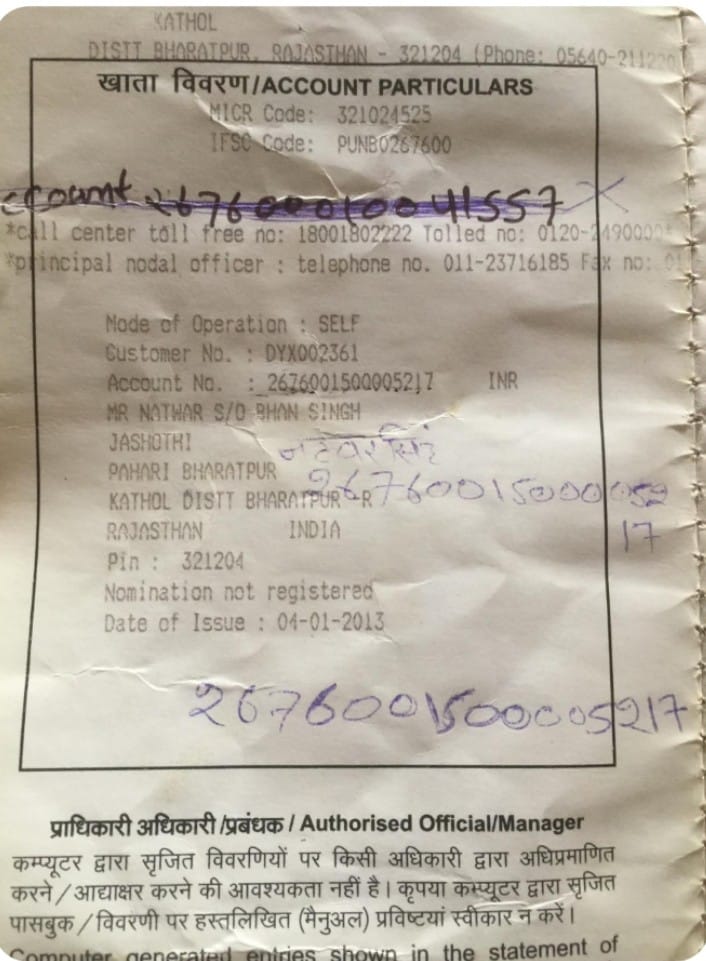 KATHOL
DISTT BHARATPUR, RAJASTHAN - 321204 (Phone: 05640-211220
खाता विवरण/ACCOUNT PARTICULARS
MICR Code: 321024525
IFSC Code: PUNB0267600
ccount 2676000100441557
*call center toll free no: 18001802222 Tolled no: 0120-2490000
*principal nodal officer : telephone no. 011-23716185 Fax no: 01
Mode of Operation : SELF
Customer No. : DYX002361
Account No. : 2676001500005217 INR
MR NATWAR S/O BHAN SINGH
JASHOTHI
नटवर सिंह
PAHARI BHARATPUR
KATHOL DISTT BHARATPUR R
26760015000052
17
RAJASTHAN INDIA
Pin : 321204
Nomination not registered
Date of Issue : 04-01-2013
2676001500005217
प्राधिकारी अधिकारी/प्रबंधक / Authorised Official/Manager
कम्प्यूटर द्वारा सृजित विवरणियों पर किसी अधिकारी द्वारा अधिप्रमाणित
करने / आद्याक्षर करने की आवश्यकता नहीं है। कृपया कम्प्यूटर द्वारा सृजित
पासबुक / विवरणी पर हस्तलिखित (मैनुअल) प्रविष्टयां स्वीकार न करें।
Computer generated entries shown in the statement of